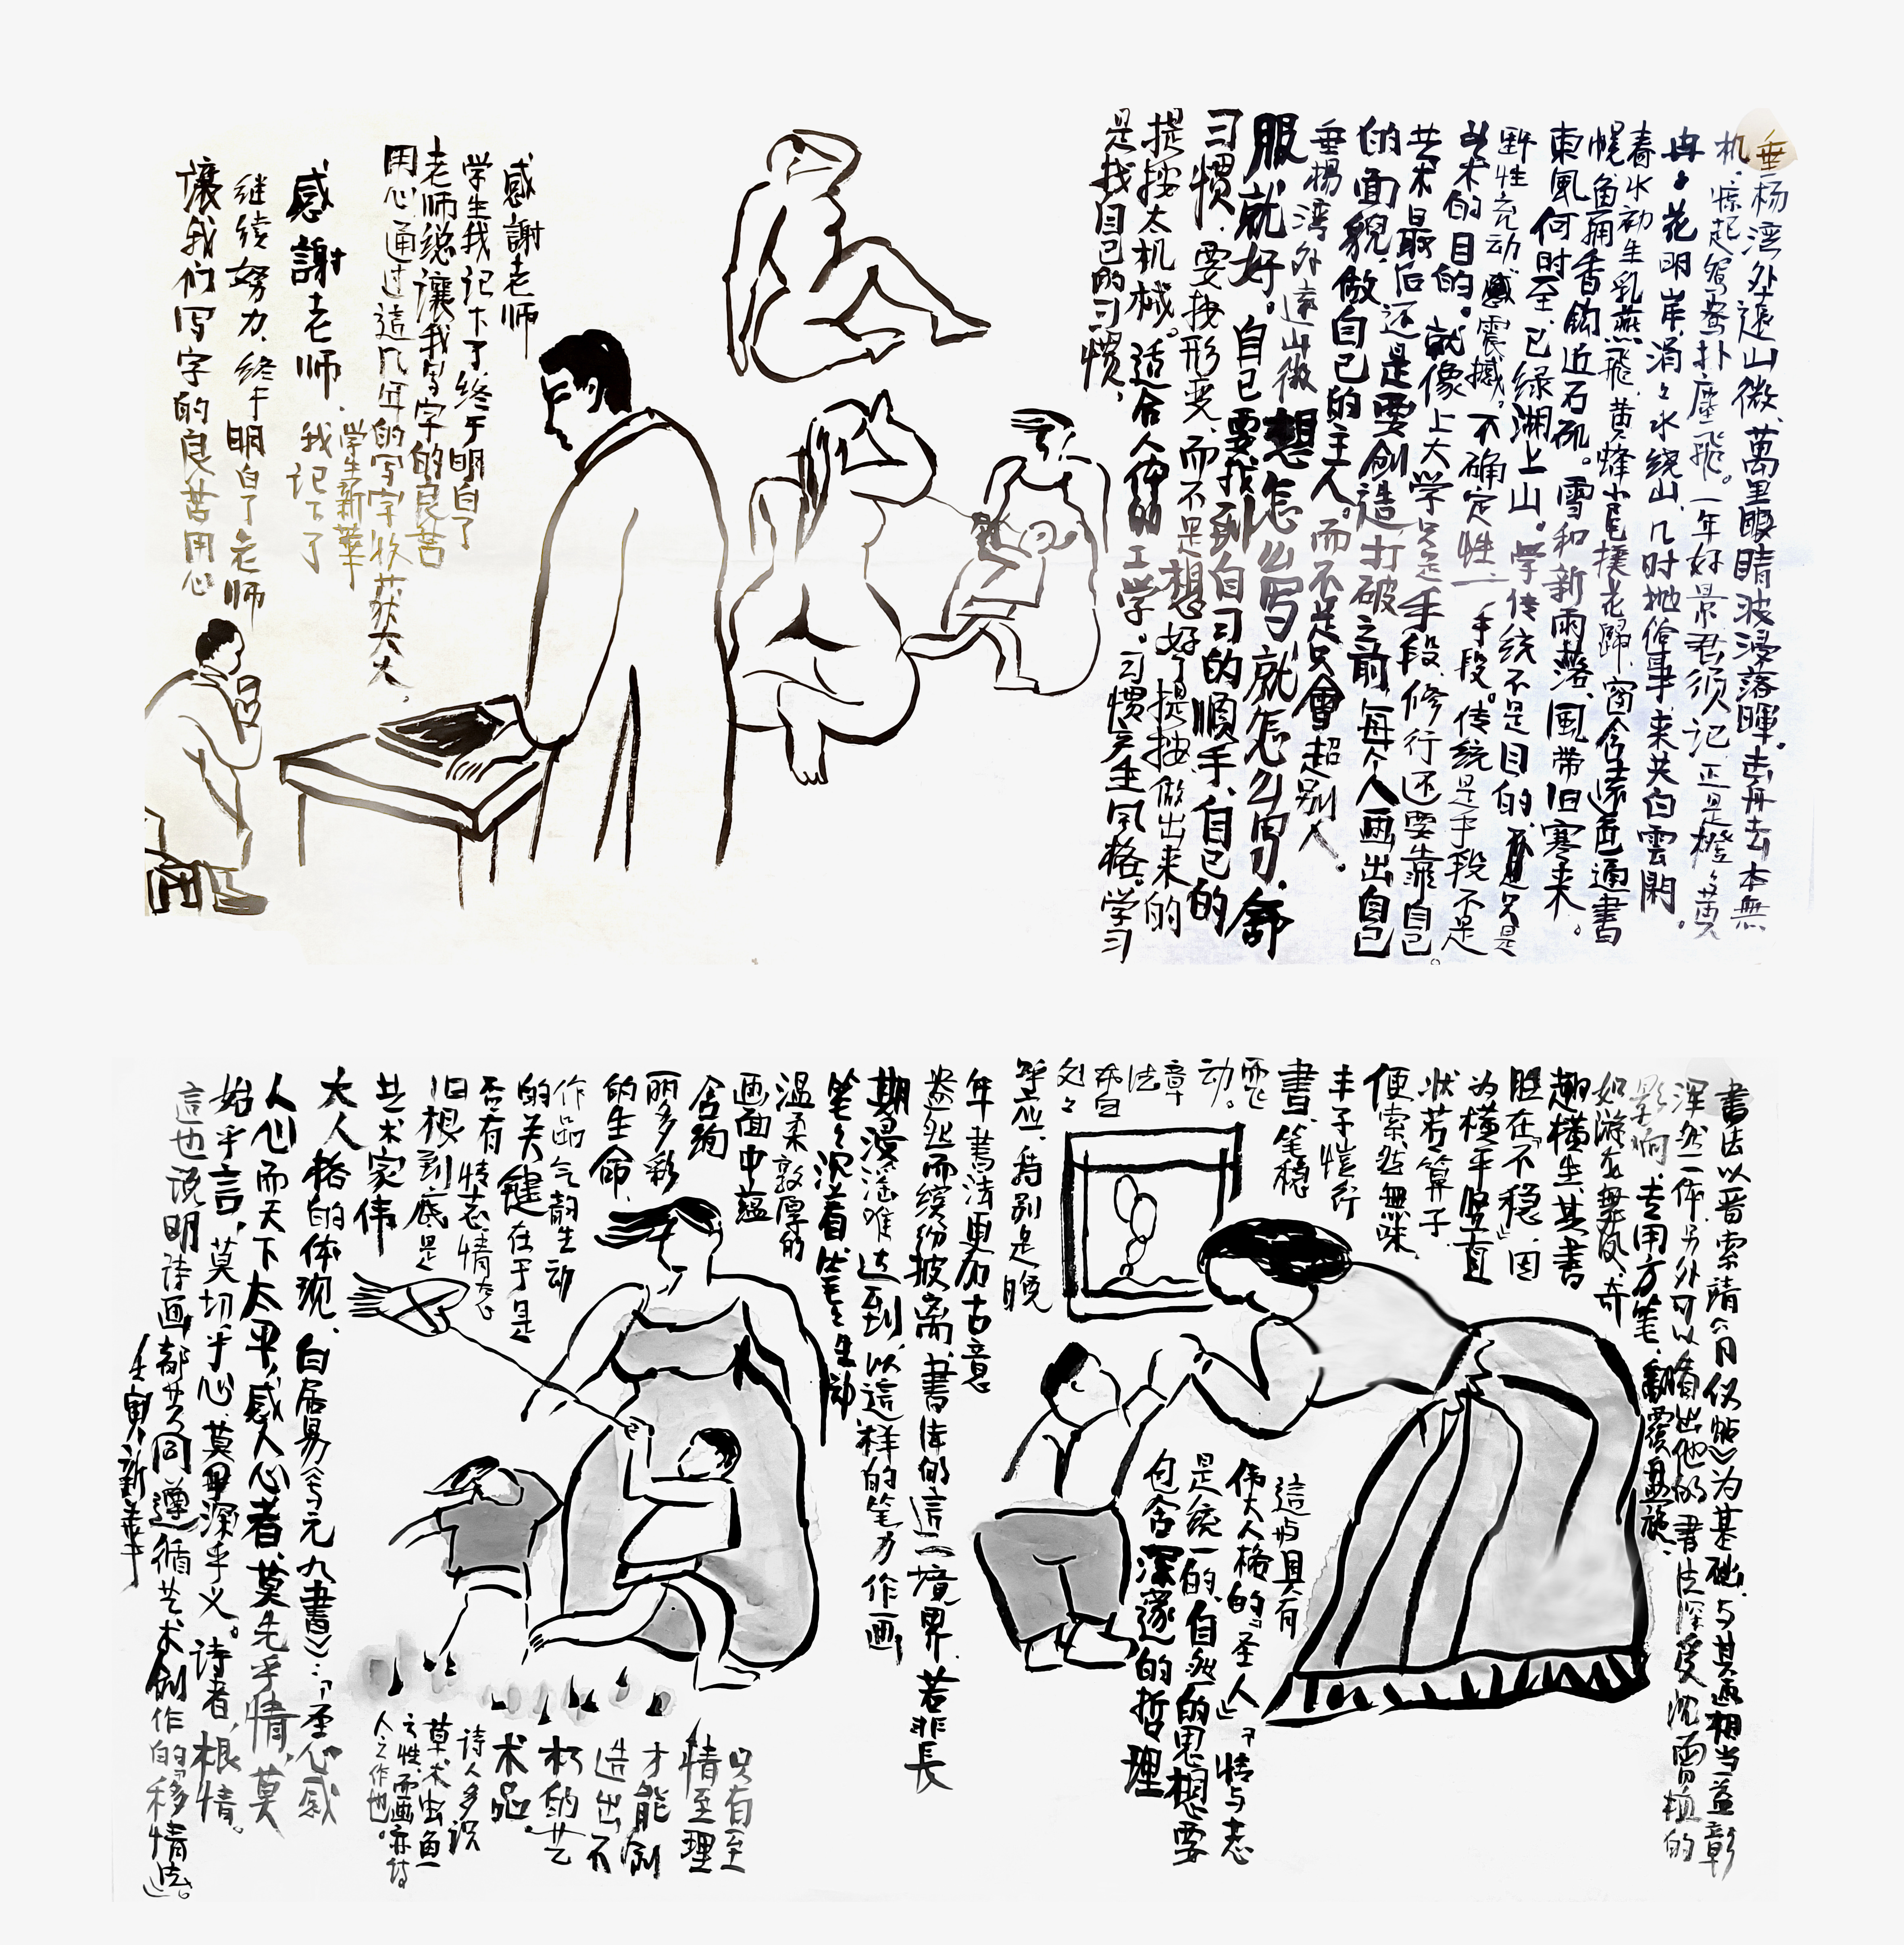 垂杨湾外远山微，萬里眼睛波浸落暉。去舟去本無
机，惊起鸳鸯扑塵飛。一年好景君须记，正是橙黄
冉冉花明岸，涓涓水绕山，几时抛俗事，来共白雲閑。
春水初生乳燕飛，黄蜂小尾撲花歸，窗含遠色通書
幌，魚擁香鈎近石矶。雪和新雨落，風带旧寒来。
東風何时至，已绿湖上山。学传统不是目的，只是
野性充动感震撼。不确定性，一手段。传统是手段不是
艺术的目的。就像上大学只是手段，修行还要靠自己。
艺术最后还是要创造，打破之前，每个人画出自己
的面貌，做自己的主人。而不是只會超别人。
垂楊湾外遠山微
想怎么写就怎么写，舒
服就好。自己要找到自习的順手，自己的
习惯，要按形变，而不是想好了提按，做出来的
提按太机械。适合人体的工学。习惯产生风格。学习
是找自己的习惯，
感謝老师
学生我记下了，终于明白了
老师说讓我写字的良苦
用心，通过這几年的写字收获大大。
学生新華
感謝老师，我记下了
继续努力，终于明白了老师
讓我们写字的良苦用心
書法以晋索靖《月仪帖》为基础，与其画相当益彰
浑然一体，另外可以看出他的書法深受沈曾植的
影响，专用方笔，翻覆盘旋，
如游龙舞凤，奇
趣横生，其書
胜在「不稳」，因
为横平竖直
状若算子
便索然無味，
丰子恺行
書，笔稳
而飞
动。
章
法
布白
处处
呼应，特别是晚
年書法更加古意
盎然而缤纷披离，書体的這一境界，若非長
期浸淫难达到，以這样的笔力作画
笔笔沉着，笔笔生动
温柔敦厚的
画面中蕴
含绚
丽多彩
的生命，
作品气韵生动
的关键在于是
否有情志，情志
旧根到底是
艺术家伟
大人格的体现，白居易《与元九書》：「圣人感
人心而天下太平，感人心者，莫先乎情，莫
始乎言，莫切乎心，莫深乎义。诗者，根情。
這也说明诗画都共同遵循艺术创作的「移情法」。
壬寅新華
這与具有
伟大人格的「圣人」「情与志
是统一的，自然的思想要
包含深邃的哲理
只有至
情至理
才能创
造出不
朽的艺
术品。
诗人多识
草木虫魚
之性，而画亦诗
人之作也。